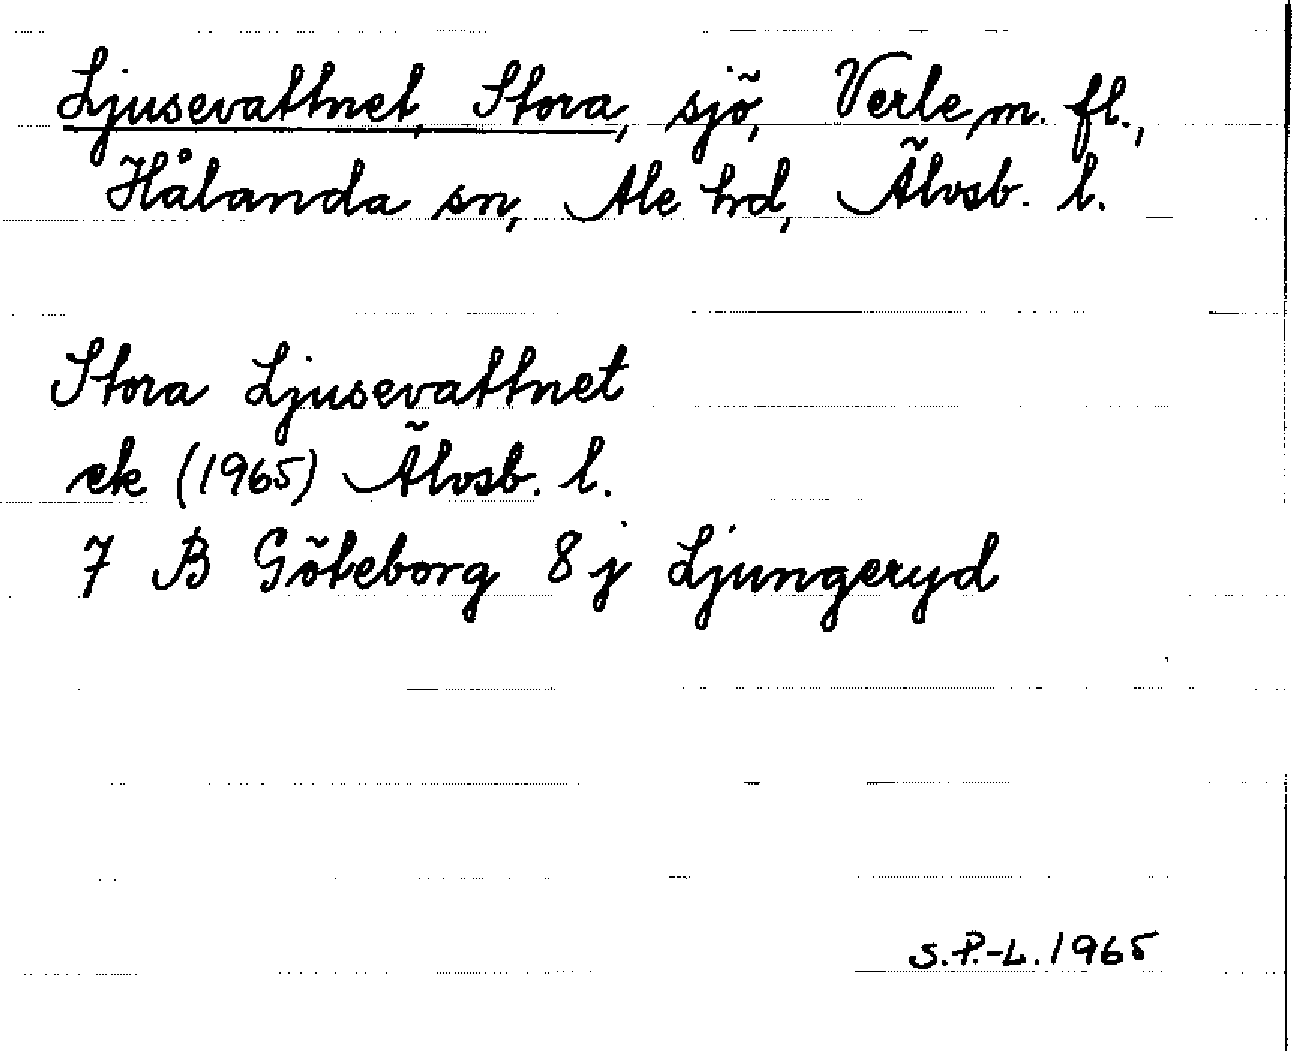 Ljusevattnet, Stora, sjö, Verle m. fl.,
Hålanda sn, Ale hrd, Älvsb. l.
Stora Ljusevattnet
ek (1965) Älvsb. l.
7 B Göteborg 8 j Ljungeryd
S.P.-L. 1965